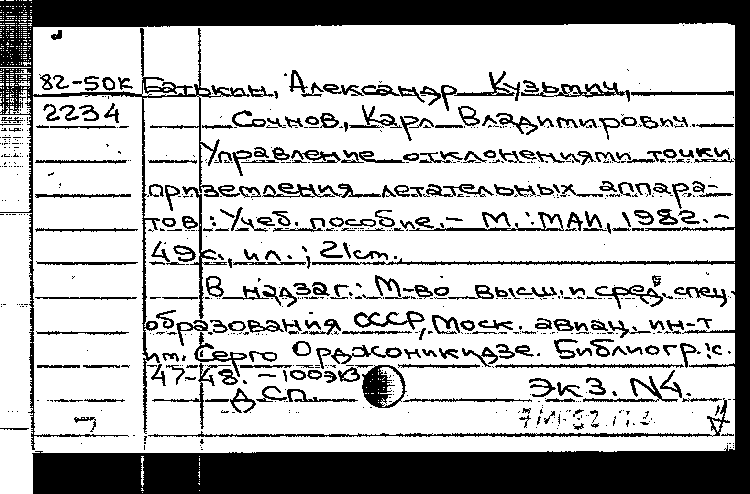 82-50к Батькин, Александр Кузьмич,
2234 Сочнов, Карл Владимирович
Управление отклонениями точки
приземления летательных аппара-
тов: Учеб. пособие.- М.: МАИ, 1982.-
49с., ил.; 21см.
В надзаг.: М-во высш. и сред. спец.
образования СССР, Моск. авиац. ин-т
им. Серго Орджоникидзе. Библиогр.: с.
47-48. - 100экз
ДСП. экз. N4.